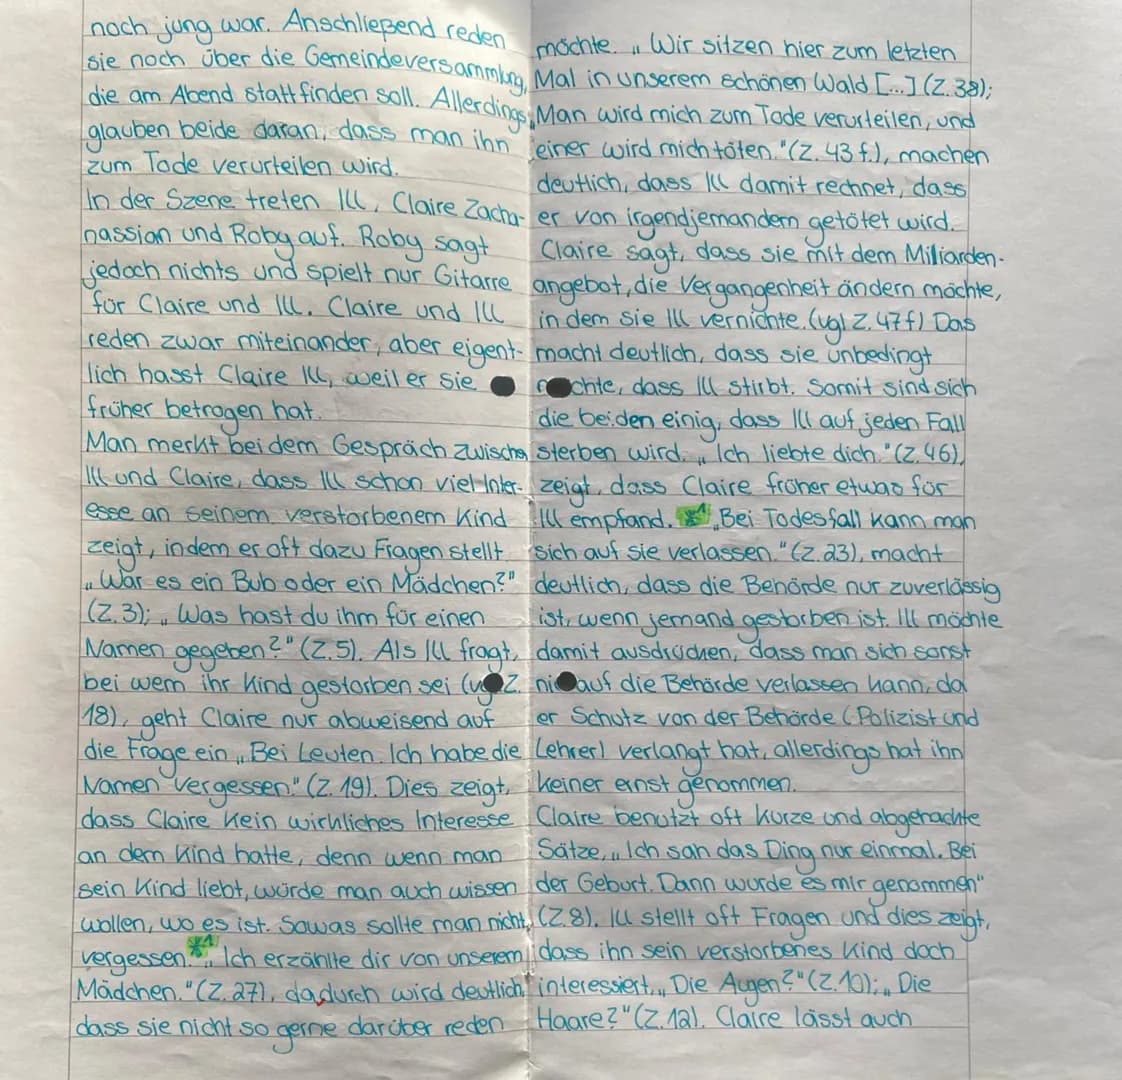 noch jung war. Anschließend reden
sie noch über die Gemeindeversammlung,
die am Abend stattfinden soll. Allerdings
glauben beide daran, dass man ihn
zum Tode verurteilen wird.
In der Szene treten Ill, Claire Zacha-
nassian und Roby auf. Roby sagt
jedoch nichts und spielt nur Gitarre
für Claire und Ill. Claire und Ill
reden zwar miteinander, aber eigent-
lich hasst Claire Ill, weil er sie
früher betrogen hat.
Man merkt bei dem Gespräch zwischen
Ill und Claire, dass Ill schon viel Inter-
esse an seinem verstorbenem Kind
zeigt, indem er oft dazu Fragen stellt
„War es ein Bub oder ein Mädchen?"
(Z.3); „Was hast du ihm für einen
Namen gegeben?" (Z.5). Als Ill fragt,
bei wem ihr Kind gestorben sei (vgl Z.
18), geht Claire nur abweisend auf
die Frage ein „Bei Leuten. Ich habe die
Namen vergessen." (Z. 19). Dies zeigt,
dass Claire kein wirkliches Interesse
an dem Kind hatte, denn wenn man
sein Kind liebt, würde man auch wissen
wollen, wo es ist. Sowas sollte man nicht
vergessen. *1 „Ich erzählte dir von unserem
Mädchen." (Z.27), dadurch wird deutlich,
dass sie nicht so gerne darüber reden
möchte. „Wir sitzen hier zum letzten
Mal in unserem schönen Wald [...] (Z.38);
„Man wird mich zum Tode verurteilen, und
einer wird mich töten." (Z. 43 f.), machen
deutlich, dass Ill damit rechnet, dass
er von irgendjemandem getötet wird.
Claire sagt, dass sie mit dem Miliarden-
angebot, die Vergangenheit ändern möchte,
in dem sie Ill vernichte. (vgl Z. 47f) Das
macht deutlich, dass sie unbedingt
möchte, dass Ill stirbt. Somit sind sich
die beiden einig, dass Ill auf jeden Fall
sterben wird. „Ich liebte dich." (Z. 46),
zeigt, dass Claire früher etwas für
Ill empfand. *1 „Bei Todesfall kann man
sich auf sie verlassen." (Z.23), macht
deutlich, dass die Behörde nur zuverlässig
ist, wenn jemand gestorben ist. Ill möchte
damit ausdrücken, dass man sich sonst
nie auf die Behörde verlassen kann, da
er Schutz von der Behörde (Polizist und
Lehrer) verlangt hat, allerdings hat ihn
keiner ernst genommen.
Claire benutzt oft kurze und abgehackte
Sätze, „Ich sah das Ding nur einmal. Bei
der Geburt. Dann wurde es mir genommen"
(Z.8). Ill stellt oft Fragen und dies zeigt,
dass ihn sein verstorbenes Kind doch
interessiert, „Die Augen?" (Z.10); „Die
Haare?" (Z.12). Claire lässt auch